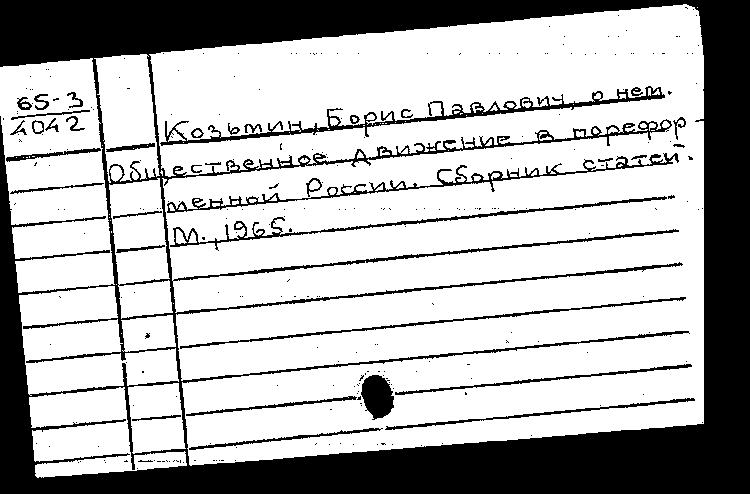 65-3
4042
Козьмин, Борис Павлович, о нем.
Общественное движение в порефор-
менной России. Сборник статей.
М., 1965.